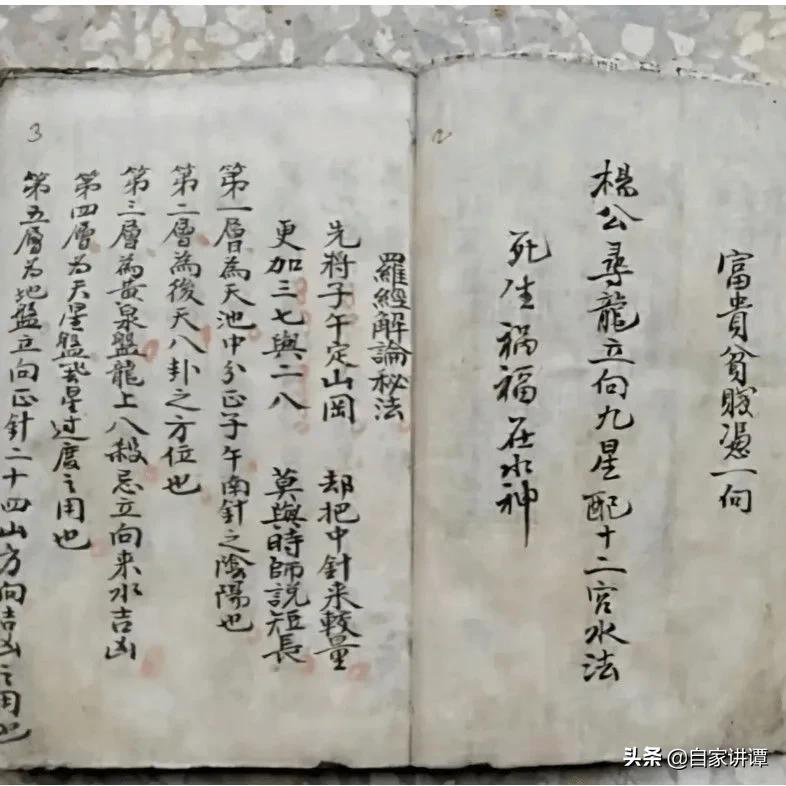 2
富貴貧賤憑一向
楊公尋龍立向九星配十二宮水法
死生禍福在水神
3
羅經解論秘法
先將子午定山岡　却把中針來較量
更加三七與二八　莫與時師說短長
第一層為天池中分正子午南針之陰陽也
第二層為後天八卦之方位也
第三層為黃泉盤龍上八殺忌立向來水吉凶
第四層為天星盤 星过度之用也
第五層為地盤立向正針二十四山方向吉凶之用也
头条 @自家讲谭